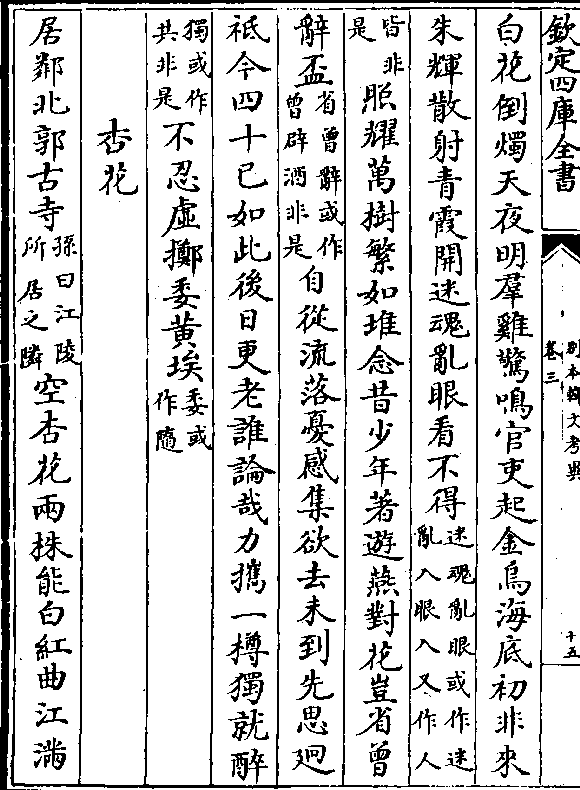 欽定四庫全書
別本韓文考異
卷三
十五
白花倒燭天夜明羣雞驚鳴官吏起金烏海底初非來
朱輝散射青霞開迷魂亂眼看不得迷魂亂眼或作迷亂入眼入又作人
皆非是照耀萬樹繁如堆念昔少年著遊燕對花豈省曾
辭盃省曾辭或作曾辟酒非是自從流落憂感集欲去未到先思廻
祗今四十已如此後日更老誰論哉力攜一樽獨就醉
獨或作共非是不忍虛擲委黃埃委或作隨
杏花
居鄰北郭古寺孫曰江陵所居之隣空杏花兩株能白紅曲江滿